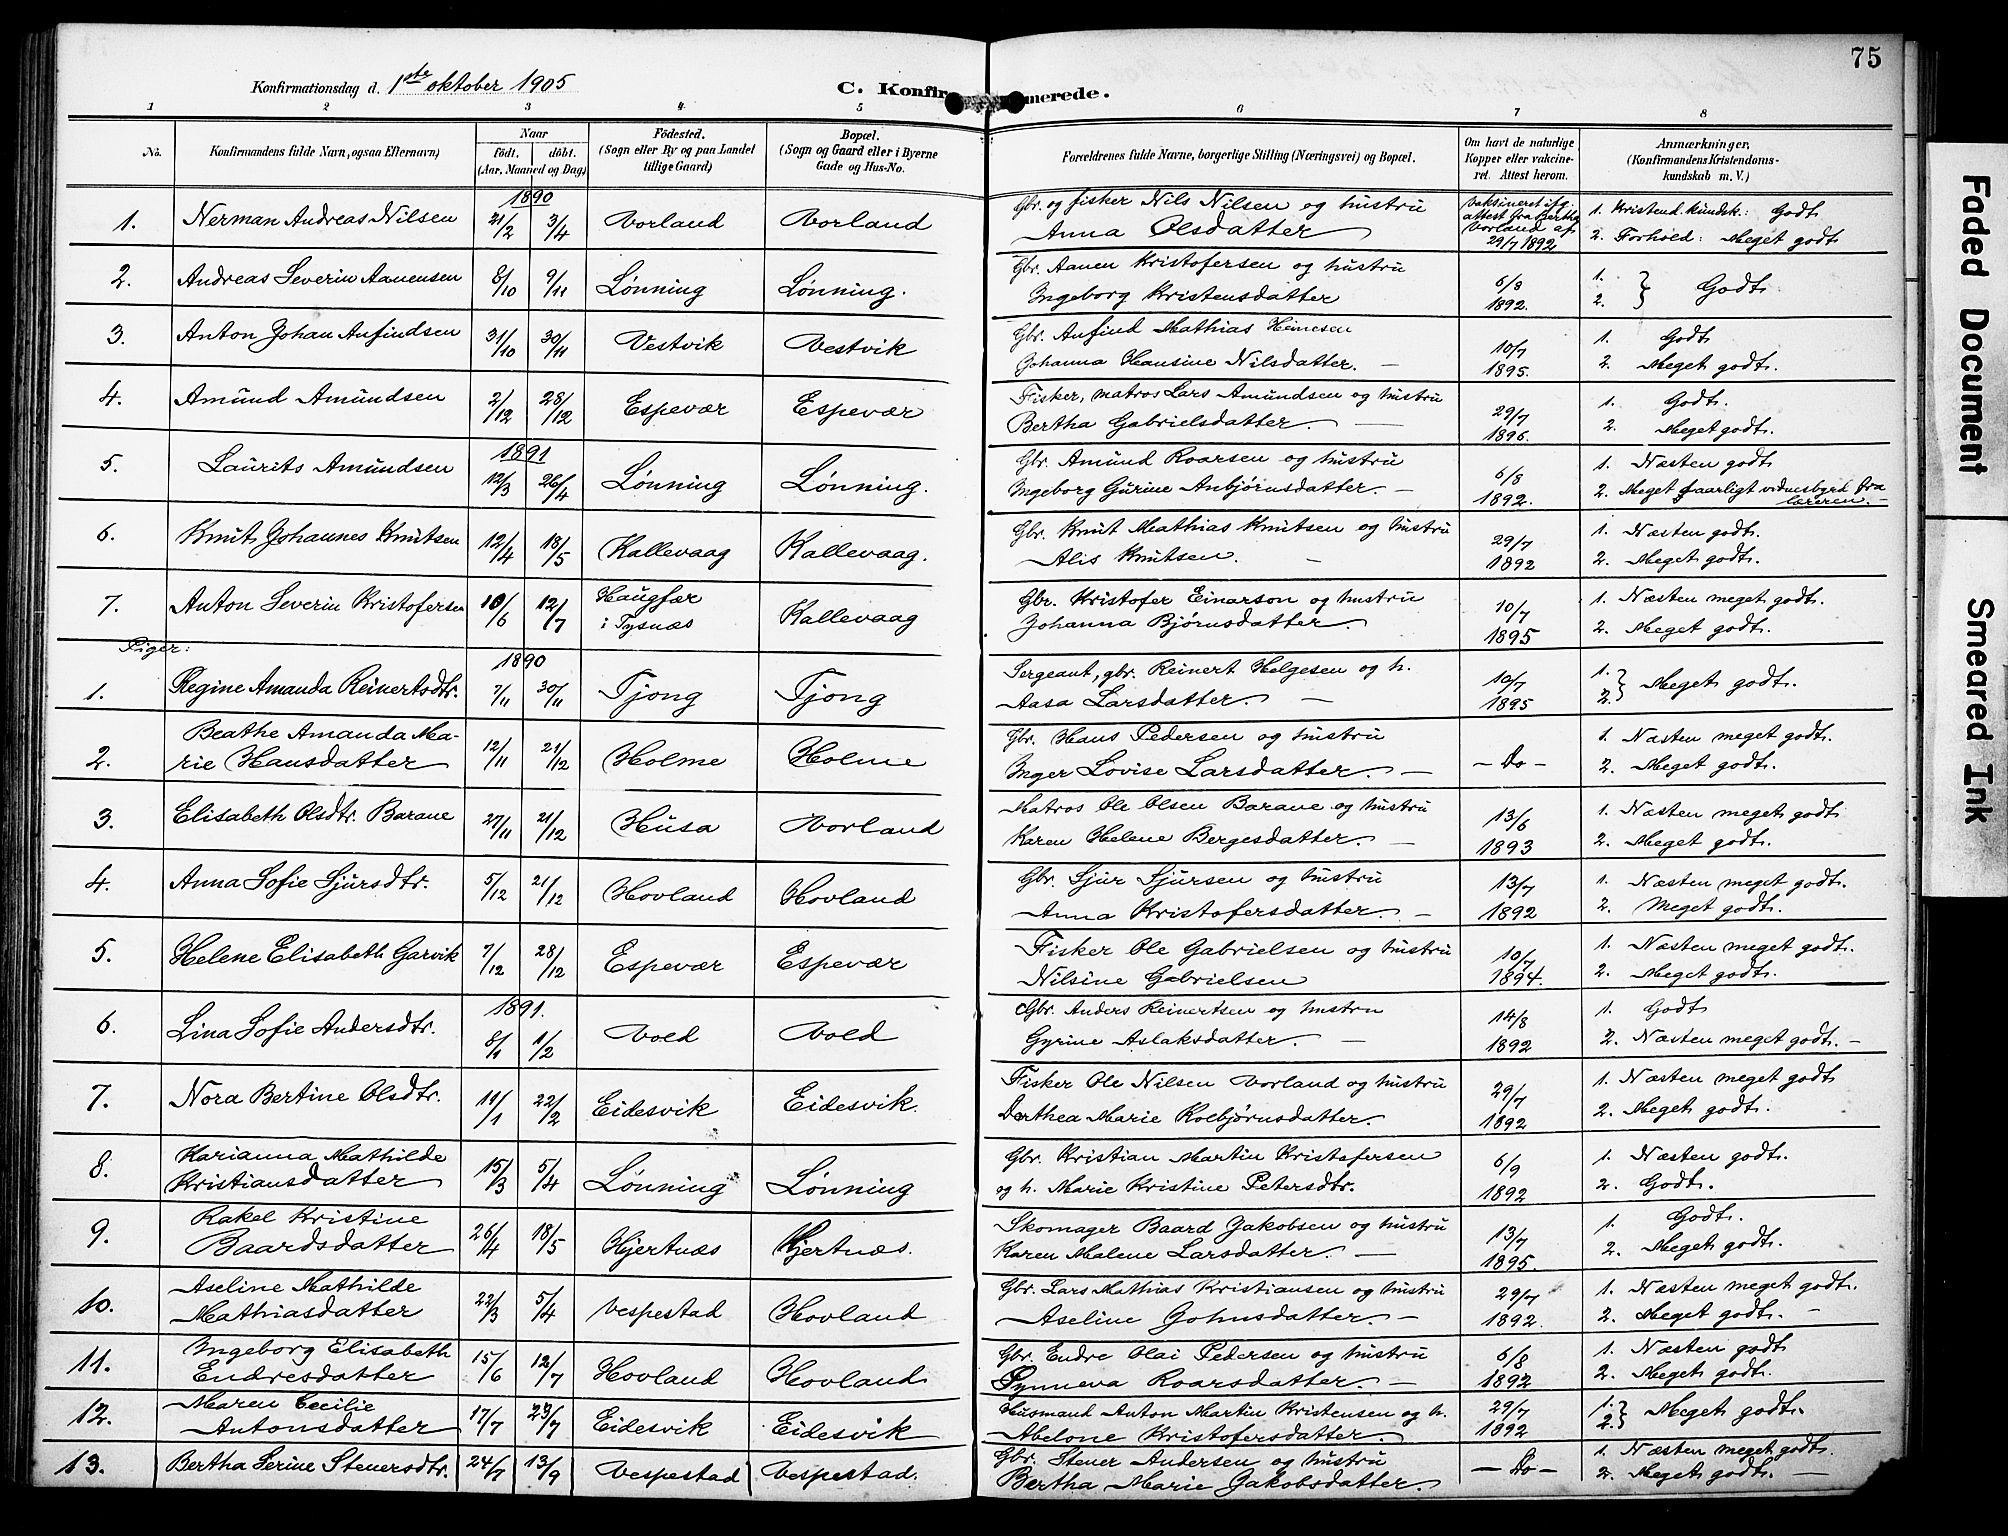 75
Konfirmationsdag d. 1ste oktober 1905
C. Konfirmerede.
1 2 3 4 5 6 7 8
No. Konfirmandens fulde Navn, ogsaa Efternavn) Naar født. døbt. (Aar, Maaned og Dag) Födested. (Sogn eller By og paa Landet tillige Gaard) Bopæl. (Sogn og Gaard eller i Byerne Gade og Hus-No. Forældrenes fulde Navne, borgerlige Stilling (Næringsvei) og Bopæl. Om havt de naturlige Kopper eller vakcineret. Attest herom. Anmærkninger, (Konfirmandens Kristendomskundskab m. V.)
1890
1. Nerman Andreas Nilsen 21/2 3/4 Vorland Vorland Gbr. og fisker Nils Nilsen og hustru Anna Olsdatter vaksineret ifg. attest fra Bertha Vorland af 29/7 1892 1. Kristend. kundsk.: Godt 2. Forhold: Meget godt
2. Andreas Severin Aanensen 8/10 9/11 Lønning Lønning. Gbr. Aanen Kristofersen og hustru Ingeborg Kristensdatter 6/8 1892. 1. 2. } Godt
3. Anton Johan Anfindsen 31/10 30/11 Vestvik Vestvik Gbr. Anfind Mathias Heinesen Johanna Hansine Nilsdatter. — 10/7 1895. 1. Godt 2. Meget godt.
4. Amund Amundsen 2/12 28/12 Espevær Espevær Fisker, matros Lars Amundsen og hustru Bertha Gabrielsdatter. — 29/7 1896. 1. Godt. 2. Meget godt.
1891
5. Laurits Amundsen 12/3 26/4 Lønning Lønning. Gbr. Amund Roarsen og hustru Ingeborg Gurine Anbjørnsdatter. — 6/8 1892. 1. Næsten godt 2. Meget daarligt vidnesbyrd fra læreren. —
6. Knut Johannes Knutsen 12/4 18/5 Kallevaag Kallevaag. Gbr. Knut Mathias Knutsen og hustru Alis Knutsen. — 29/7 1892 1. Næsten godt. 2. Meget godt.
7. Anton Severin Kristofersen 10/6 12/7 Haugfær i Tysnæs Kallevaag Gbr. Kristofer Einarson og hustru Johanna Bjørnsdatter. 10/7 1895 1. Næsten meget godt. 2. Meget godt.
Piger:
1890
1. Regine Amanda Reinertsdtr. 7/11 30/11 Tjong Tjong Sergeant, gbr. Reinert Helgesen og h. Aasa Larsdatter. — 10/7 1895 1. 2. } Meget godt.
2. Beathe Amanda Marie Hansdatter 12/11 21/12 Holme Holme Gbr. Hans Pedersen og hustru Inger Lovise Larsdatter. — — Do — 1. Næsten meget godt. 2. Meget godt.
3. Elisabeth Olsdtr. Barane 27/11 21/12 Husa Vorland Matros Ole Olsen Barane og hustru Karen Helene Bergesdatter. — 13/6 1893 1. Næsten meget godt 2. Meget godt.
4. Anna Sofie Sjursdtr. 5/12 21/12 Hovland Hovland Gbr. Sjur Sjursen og hustru Anna Kristofersdatter. — 13/7 1892 1. Næsten meget godt. 2. Meget godt.
5. Helene Elisabeth Garvik 7/12 28/12 Espevær Espevær Fisker Ole Gabrielsen og hustru Nilsine Gabrielsen 10/7 1894. 1. Næsten meget godt. 2. Meget godt.
1891.
6. Lina Sofie Andersdtr. 8/1 1/2 Vold Vold Gbr. Anders Reinertsen og hustru Gyrine Aslaksdatter. — 14/8 1892 1. Godt 2. Næsten meget godt. —
7. Nora Bertine Olsdtr. 11/1 22/2 Eidesvik Eidesvik. Fisker Ole Nilsen Vorland og hustru Dorthea Marie Kolbjørnsdatter. 29/7 1892 1. Næsten meget godt 2. Meget godt.
8. Karianna Mathilde Kristiansdatter 15/3 5/4 Lønning Lønning Gbr. Kristian Martin Kristofersen og h. Marie Kristine Petersdtr. 6/9 1892 1. Næsten godt. 2. Godt.
9. Rakel Kristine Baardsdatter 26/4 18/5 Hjertnæs Hjertnæs. Skomager Baard Jakobsen og hustru Karen Malene Larsdatter. — 13/7 1895. 1. Godt. 2. Meget godt.
10. Aseline Mathilde Mathiasdatter 22/3 5/4 Vespestad Hovland Gbr. Lars Mathias Kristiansen og hustru Aseline Johnsdatter. — 29/7 1892. 1. Næsten meget godt. 2. Meget godt. —
11. Ingeborg Elisabeth Endresdatter 15/6 12/7 Hovland Hovland Gbr. Endre Olai Pedersen og hustru Synneva Roarsdatter. — 6/8 1892 1. Næsten godt 2. Meget godt.
12. Maren Cecilie Antonsdatter 17/7 29/7 Eidesvik Eidesvik Husmand Anton Martin Kristensen og h. Abelone Kristofersdatter. 29/7 1892 1. 2. } Meget godt.
13. Bertha Serine Stenersdtr. 24/7 13/9 Vespestad Vespestad. Gbr. Stener Andersen og hustru Bertha Marie Jakobsdatter. — Do — 1. Næsten meget godt. 2. Meget godt. —
Faded Document
Smeared Ink